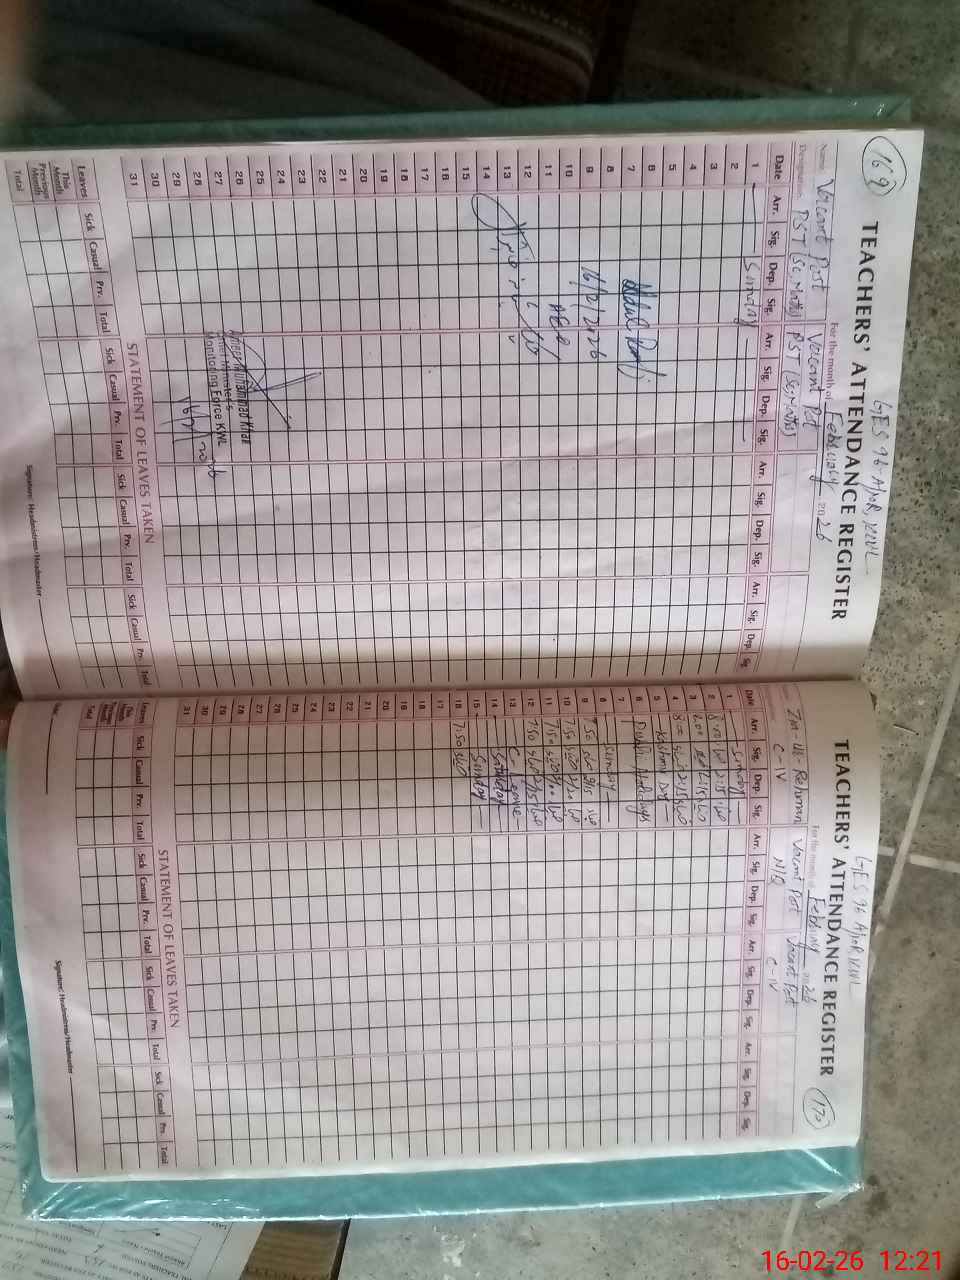 169
GES 96-A/10R, KWL
TEACHERS' ATTENDANCE REGISTER
For the month of February 2026
Name Vacant Post Vacant Post
Designation PST (Sc, Maths) PST (Sc, Maths)
Date Arr. Sig. Dep. Sig. Arr. Sig. Dep. Sig. Arr. Sig. Dep. Sig. Arr. Sig. Dep. Sig.
1 Sunday
2
3
4
5
6
7
8
9 16/2/2026
10
11 AEO
12
13
14
15
16
17
18
19
20
21
22
23
24
25
26 Ameer Muhammad Khan
27 Chief Minister's
28 Monitoring Force KWL
29
30
31
STATEMENT OF LEAVES TAKEN
Leaves Sick Casual Prv. Total Sick Casual Prv. Total Sick Casual Prv. Total Sick Casual Prv. Total
This Month
Previous Month
Total
Signature: Headmistress/Headmaster
170
GES 96 A/10R, KWL
TEACHERS' ATTENDANCE REGISTER
For the month of February 2026
Zia-ul-Rehman Vacant Post Vacant Post
C-IV N/Q C-IV
Date Arr. Sig. Dep. Sig. Arr. Sig. Dep. Sig. Arr. Sig. Dep. Sig. Arr. Sig. Dep. Sig.
1 Sunday
2 8:00 2:15
3 8:00 2:15
4 8:00 2:15
5 Kashmir Day
6 Public Holidays
7
8 Sunday
9 7:50 2:15
10 7:50
11 7:50
12 7:50 2:15
13 C-Leave
14 Saturday
15 Sunday
16 7:50
17
18
19
20
21
22
23
24
25
26
27
28
29
30
31
STATEMENT OF LEAVES TAKEN
Leaves Sick Casual Prv. Total Sick Casual Prv. Total Sick Casual Prv. Total Sick Casual Prv. Total
This Month
Previous Month
Total
Signature: Headmistress/Headmaster
16-02-26 12:21